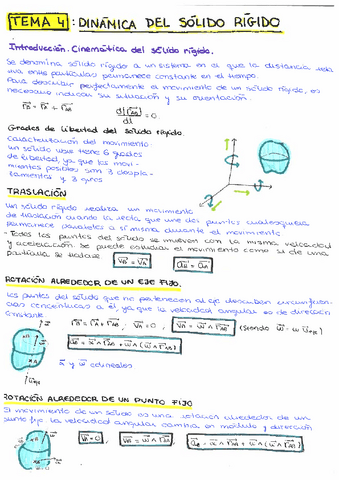 TEMA 4: DINÁMICA DEL SÓLIDO RÍGIDO
Introducción. Cinemática del sólido rígido.
Se denomina sólido rígido a un sistema en el que la distancia
entre partículas permanece constante en el tiempo.
Para describir perfectamente el movimiento de un sólido rígido, es
necesario indicar su situación y su orientación.
r⃗B = r⃗A + r⃗AB   d|r⃗AB|/dt = 0
Grados de libertad del sólido rígido.
Caracterización del movimiento:
un sólido libre tiene 6 grados
de libertad, ya que los movi-
mientos posibles son 3 despla-
zamientos y 3 giros
TRASLACIÓN
Un sólido rígido realiza un movimiento
de traslación cuando la recta que une dos puntos cualesquiera
permanece paralela a sí misma durante el movimiento
- Todos los puntos del sólido se mueven con la misma velocidad
y aceleración. Se puede estudiar el movimiento como si de una
partícula se tratase v⃗B = v⃗A   a⃗B = a⃗A
ROTACIÓN ALREDEDOR DE UN EJE FIJO.
Los puntos del sólido que no pertenecen al eje describen circunferen-
cias concéntricas a él, ya que la velocidad angular es de dirección
constante
r⃗B = r⃗A + r⃗AB , v⃗A = 0 , v⃗B = w⃗ ∧ r⃗AB (siendo w⃗ = w u⃗eje)
a⃗B = α⃗ ∧ r⃗AB + w⃗ ∧ (w⃗ ∧ r⃗AB)
α⃗ y w⃗ colineales
ROTACIÓN ALREDEDOR DE UN PUNTO FIJO
El movimiento de un sólido es una rotación alrededor de un
punto fijo la velocidad angular cambia en módulo y dirección
v⃗A = 0   v⃗B = w⃗ ∧ r⃗AB   a⃗B = α⃗ ∧ r⃗AB + w⃗ ∧ (w⃗ ∧ r⃗AB)